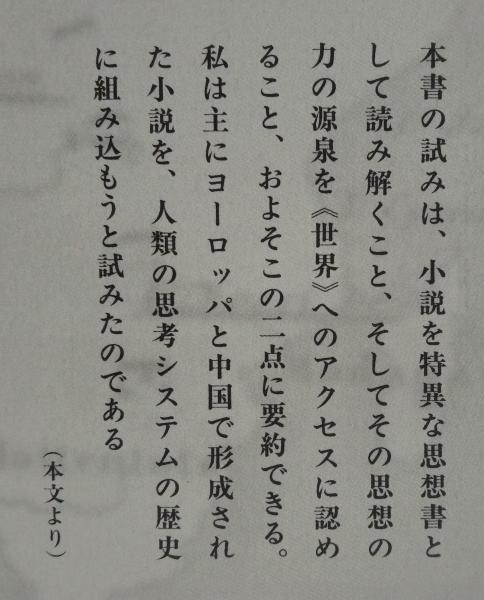 本書の試みは、小説を特異な思想書と
して読み解くこと、そしてその思想の
力の源泉を《世界》へのアクセスに認め
ること、およそこの二点に要約できる。
私は主にヨーロッパと中国で形成され
た小説を、人類の思考システムの歴史
に組み込もうと試みたのである
（本文より）